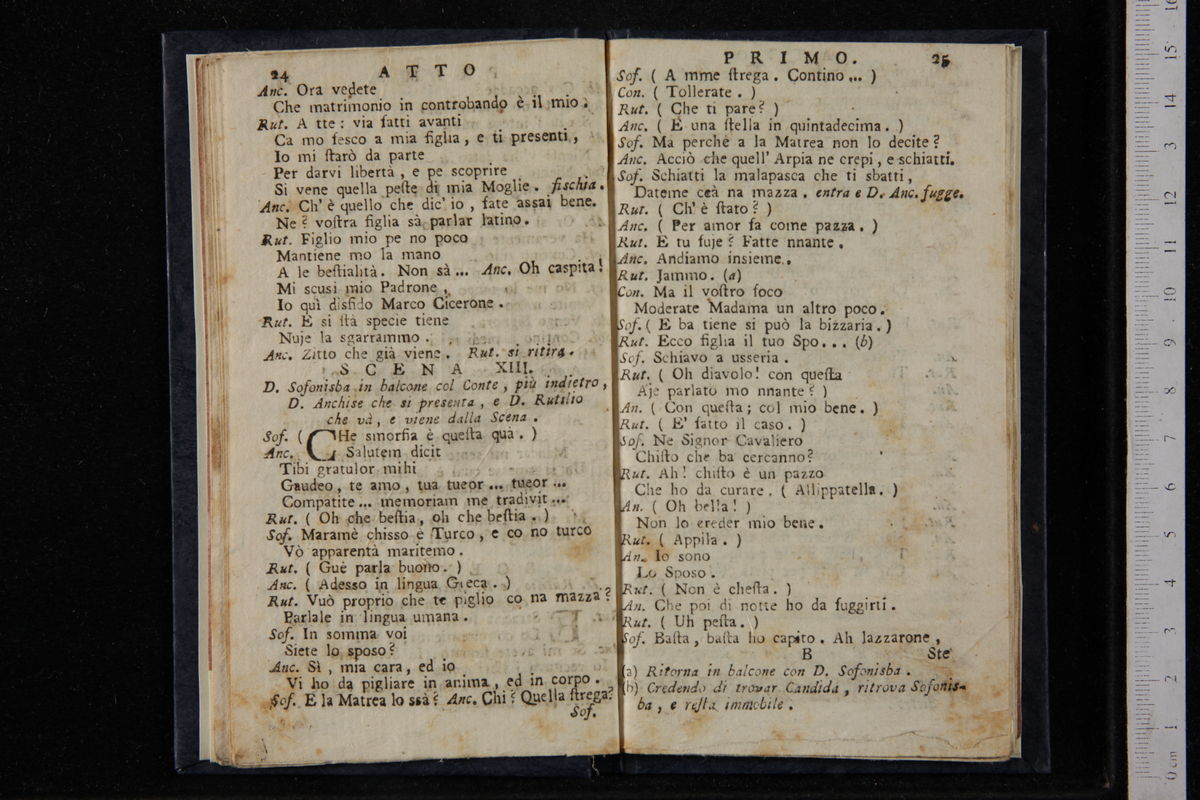 24 ATTO
Anc. Ora vedete
Che matrimonio in controbando è il mio.
Rut. A tte: via fatti avanti
Ca mo ſesco a mia figlia, e ti presenti,
Io mi ſtarò da parte
Per darvi libertà, e pe scoprire
Si vene quella peſte di mia Moglie. fischia.
Anc. Ch' è quello che dic' io, fate assai bene.
Ne? voſtra figlia sà parlar latino.
Rut. Figlio mio pe no poco
Mantiene mo la mano
A le beſtialità. Non sà... Anc. Oh caspita!
Mi scusi mio Padrone,
Io quì disfido Marco Cicerone.
Rut. E si ſtà specie tiene
Nuje la sgarrammo.
Anc. Zitto che già viene. Rut. si ritira.
SCENA XIII.
D. Sofonisba in balcone col Conte, più indietro,
D. Anchise che si presenta, e D. Rutilio
che và, e viene dalla Scena.
Sof. (CHe smorfia è queſta quà.)
Anc. Salutem dicit
Tibi gratulor mihi
Gaudeo, te amo, tua tueor... tueor...
Compatite... memoriam me tradivit...
Rut. (Oh che beſtia, oh che beſtia.)
Sof. Maramè chisso è Turco, e co no turco
Vò apparentà maritemo.
Rut. (Guè parla buono.)
Anc. (Adesso in lingua Greca.)
Rut. Vuò proprio che te piglio co na mazza?
Parlale in lingua umana.
Sof. In somma voi
Siete lo sposo?
Anc. Sì, mia cara, ed io
Vi ho da pigliare in anima, ed in corpo.
Sof. E la Matrea lo ssà? Anc. Chi? Quella ſtrega?
Sof.
PRIMO. 25
Sof. (A mme ſtrega. Contino...)
Con. (Tollerate.)
Rut. (Che ti pare?)
Anc. (E una ſtella in quintadecima.)
Sof. Ma perchè a la Matrea non lo decite?
Anc. Acciò che quell' Arpia ne crepi, e schiatti.
Sof. Schiatti la malapasca che ti sbatti,
Dateme ccà na mazza. entra e D. Anc. fugge.
Rut. (Ch' è ſtato?)
Anc. (Per amor fa come pazza.)
Rut. E tu fuje? Fatte nnante.
Anc. Andiamo insieme.
Rut. Jammo. (a)
Con. Ma il voſtro foco
Moderate Madama un altro poco.
Sof. (E ba tiene si può la bizzaria.)
Rut. Ecco figlia il tuo Spo... (b)
Sof. Schiavo a usseria.
Rut. (Oh diavolo! con queſta
Aje parlato mo nnante?)
An. (Con queſta; col mio bene.)
Rut. (E' fatto il caso.)
Sof. Ne Signor Cavaliero
Chiſto che ba cercanno?
Rut. Ah! chiſto è un pazzo
Che ho da curare. (Allippatella.)
An. (Oh bella!)
Non lo creder mio bene.
Rut. (Appila.)
An. Io sono
Lo Sposo.
Rut. (Non è cheſta.)
An. Che poi di notte ho da fuggirti.
Rut. (Uh peſta.)
Sof. Baſta, baſta ho capito. Ah lazzarone,
B Ste
(a) Ritorna in balcone con D. Sofonisba.
(b) Credendo di trovar Candida, ritrova Sofonis-
ba, e reſta immobile.